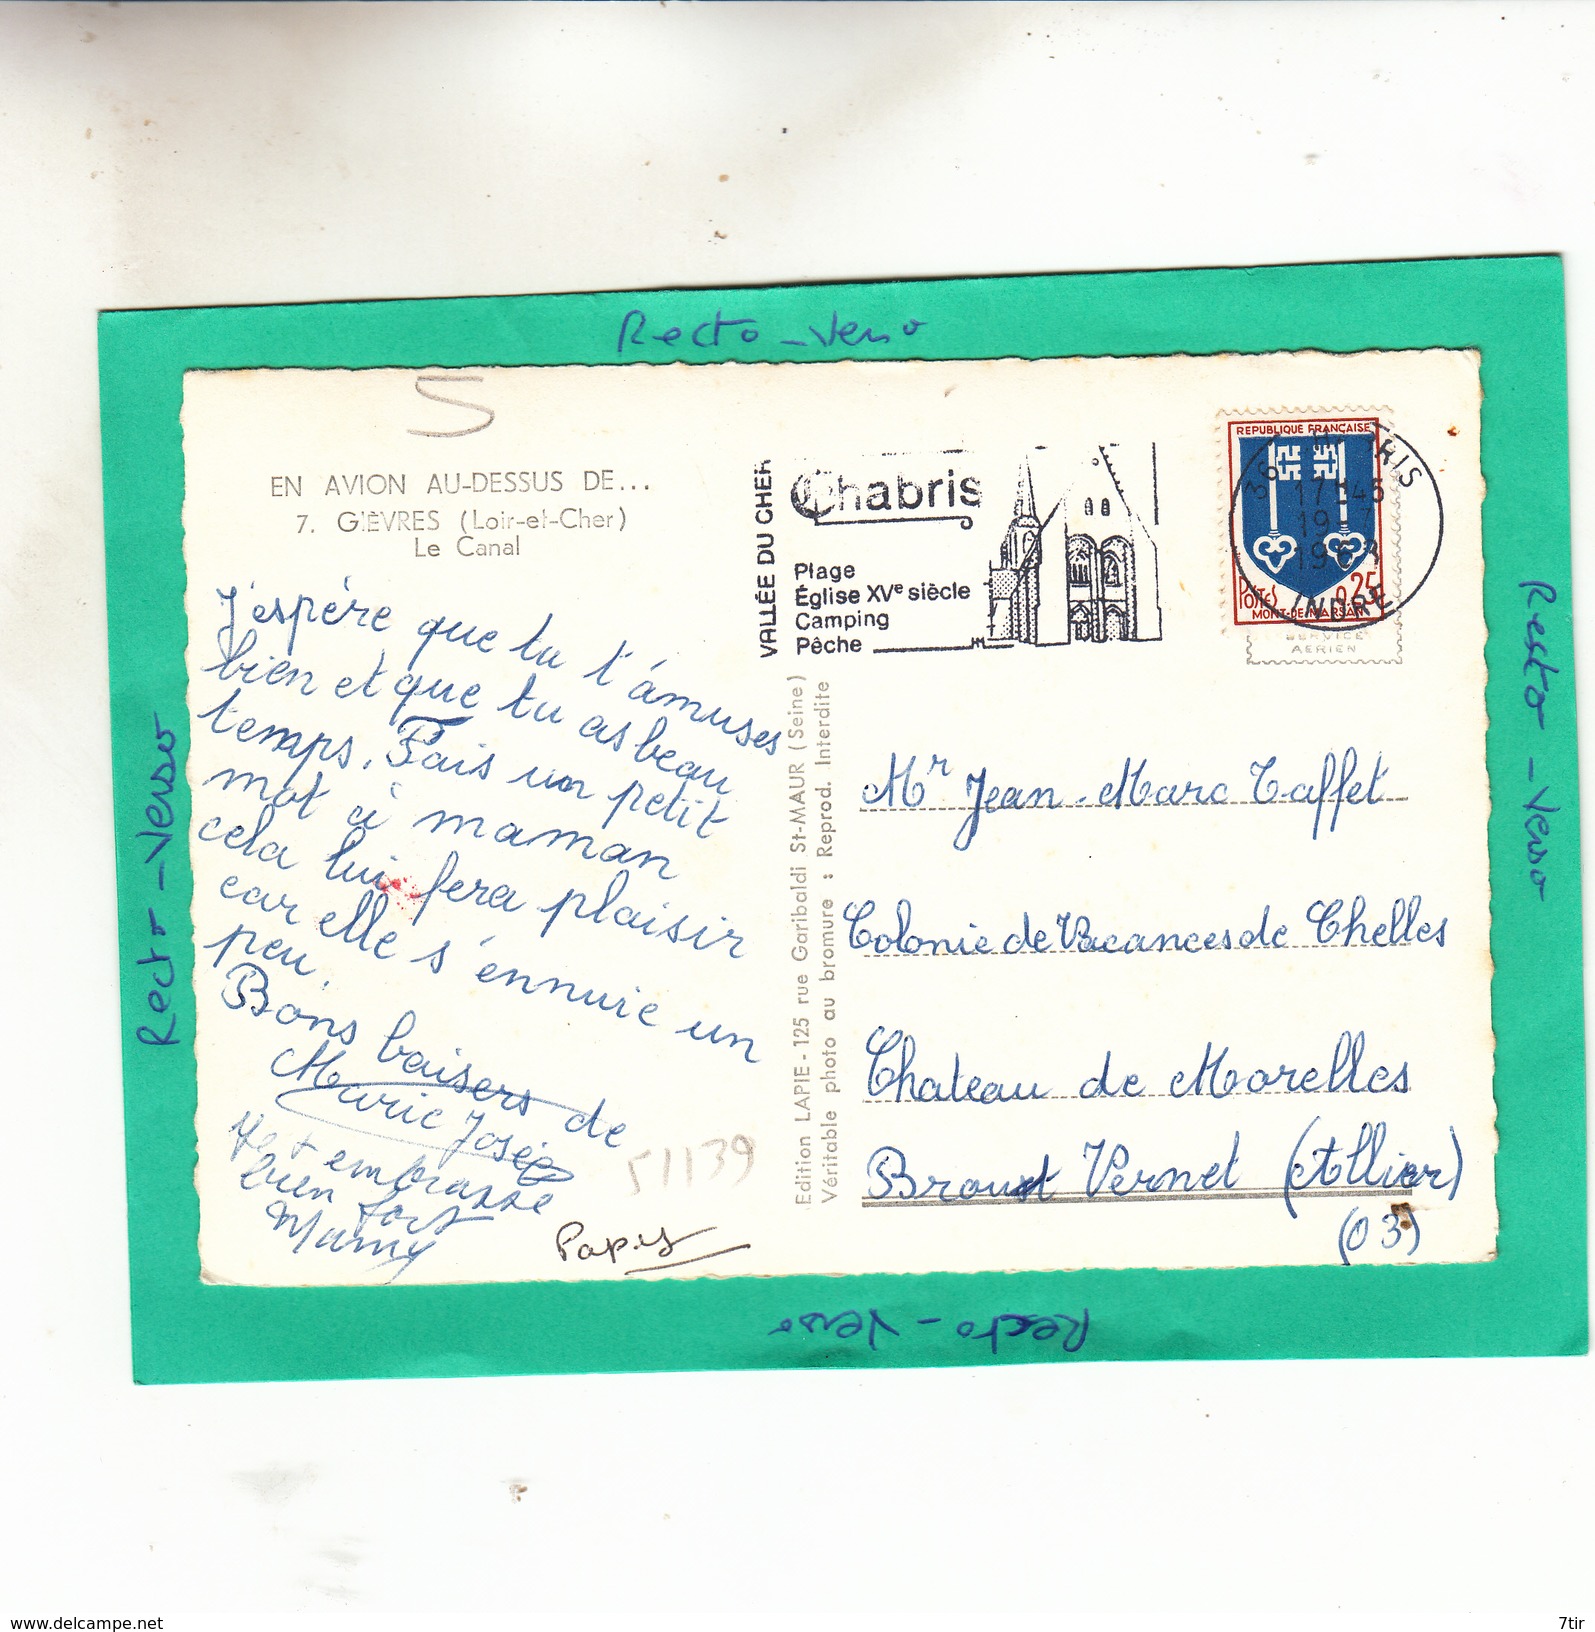 Recto - Verso
5
EN AVION AU-DESSUS DE...
7. GIÈVRES (Loir-et-Cher)
Le Canal
J'espère que tu t'amuses
bien et que tu as beau
temps. Fais un petit
mot à maman
cela lui fera plaisir
car elle s'ennuie un
peu.
Bons baisers de
Marie Josée
Je t embrasse
bien fort
Mamy
Papy
51139
VALLÉE DU CHER
Chabris
Plage
Église XVe siècle
Camping
Pêche
REPUBLIQUE FRANÇAISE
POSTES
0,25
MONT-DE-MARSAN
36
CHABRIS
17H45
19-7
INDRE
SERVICE
AERIEN
Edition LAPIE - 125 rue Garibaldi St-MAUR (Seine)
Véritable photo au bromure : Reprod. Interdite
Mr Jean-Marc Taffet
Colonie de Vacances de Chelles
Chateau de Morelles
Brout Vernet (Allier)
(03)
Recto - Verso
Recto - Verso
Recto - Verso
www.delcampe.net
7tir